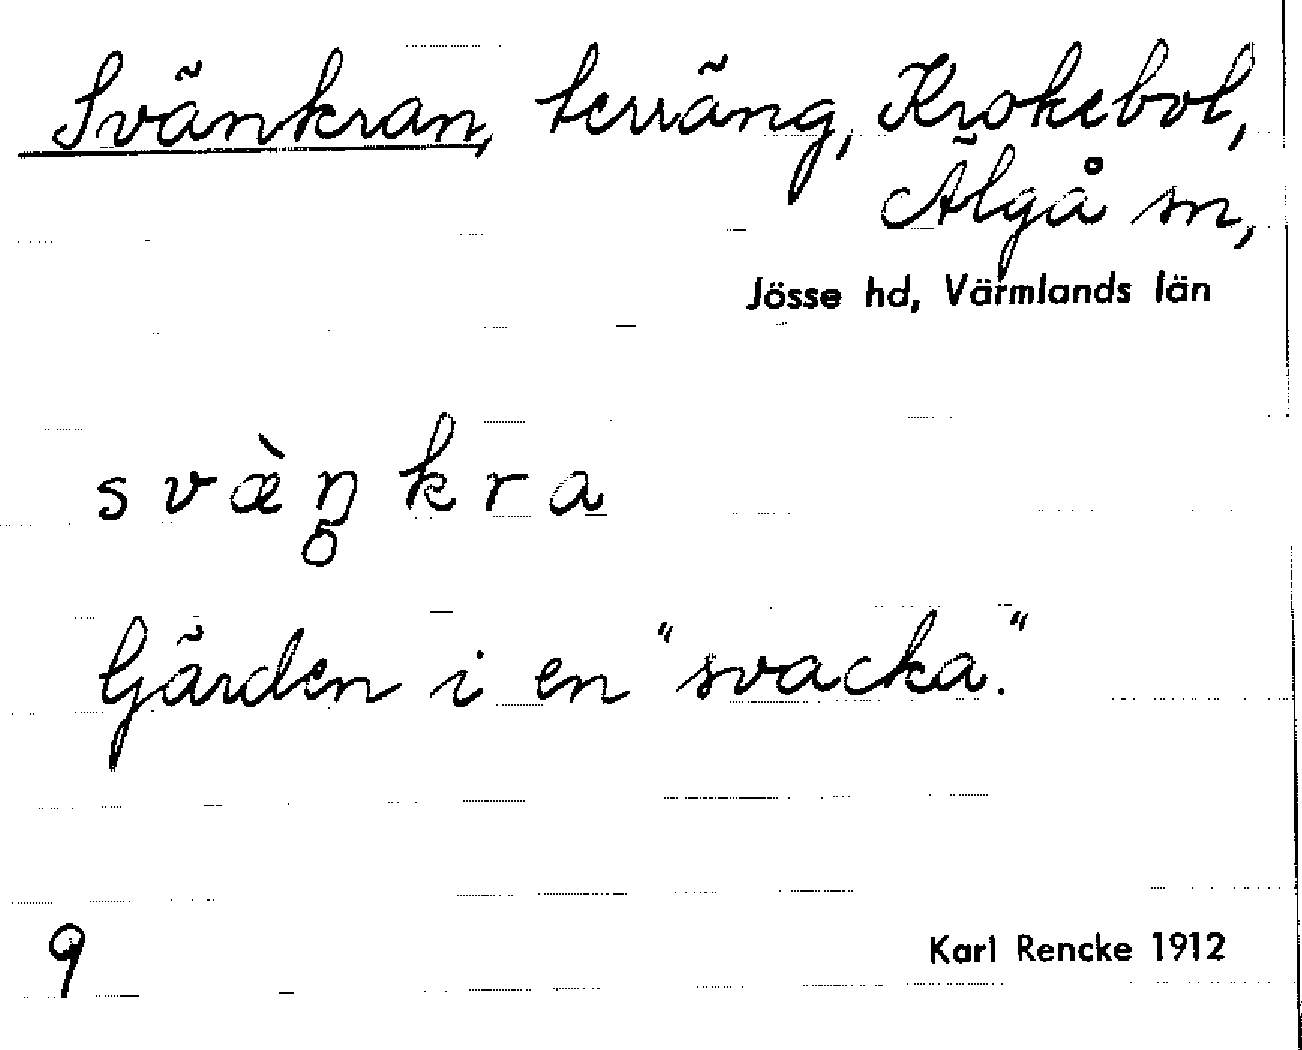 Svänkran, terräng, Krokebol,
Älgå sn,
Jösse hd, Värmlands län
svæ̀n̥kra
Gärden i en "svacka."
9
Karl Rencke 1912